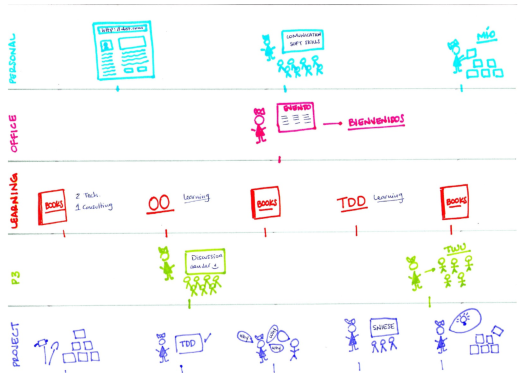 PERSONAL
COMUNICATION
SOFT SKILLS
MÍO
OFFICE
EVENTO
BIENVENIDOS
LEARNING
BOOKS
2 Tech
1 Consulting
OO
Learning
BOOKS
TDD
Learning
BOOKS
P3
Discussion
TWU
PROJECT
TDD